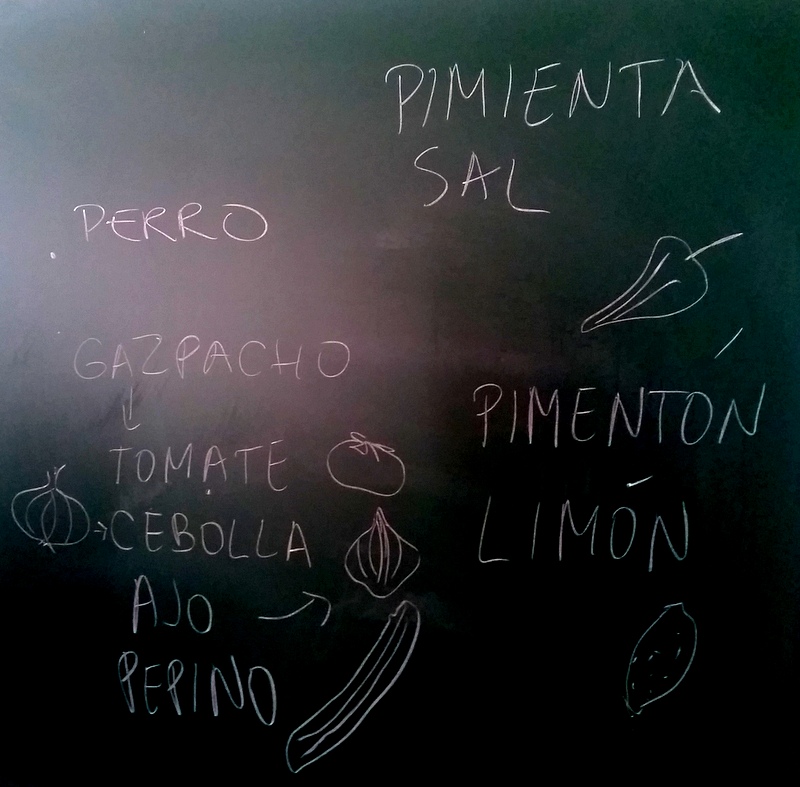 PIMIENTA
SAL
PERRO
GAZPACHO
TOMATE
CEBOLLA
AJO
PEPINO
PIMENTÓN
LIMÓN